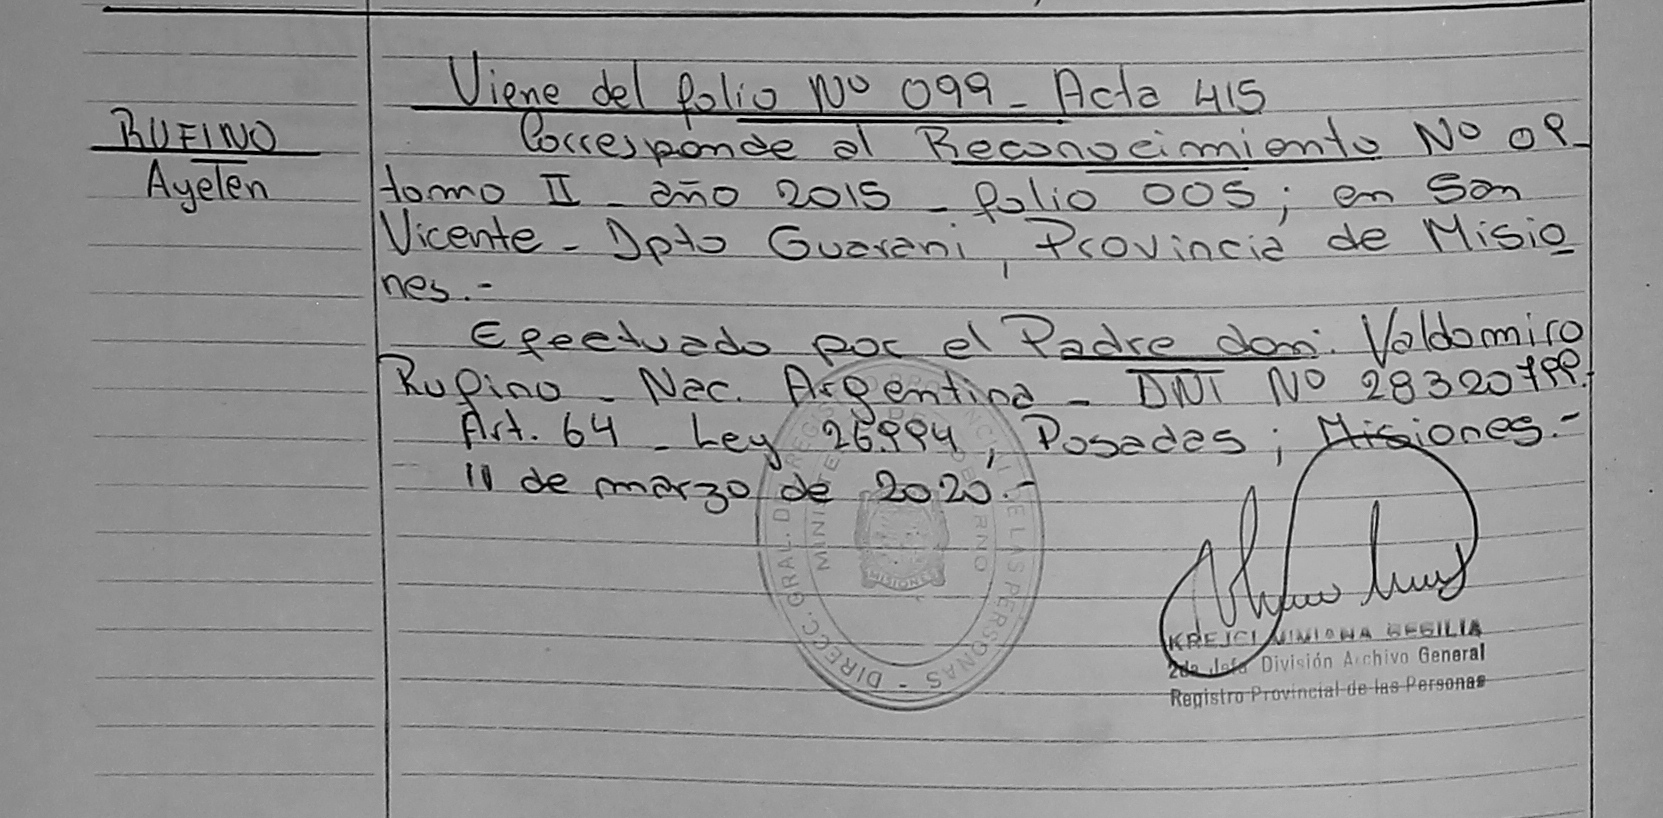 Viene del folio Nº 099 - Acta 415
RUFINO
Ayelen
Corresponde al Reconocimiento Nº 09-
tomo II - año 2015 - folio 005; en San
Vicente - Dpto Guarani, Provincia de Misio
nes.-
Efectuado por el Padre don: Valdomiro
Rufino - Nac. Argentina - DNI Nº 28320799.
Art. 64 - Ley 26994, Posadas; Misiones.-
11 de marzo de 2020.-
DIRECC. GRAL. DE REG. PROVINCIAL DE LAS PERSONAS -
MINISTERIO DE GOBIERNO
MISIONES
KREJCI VIVIANA
2da Jefa División Archivo General
Registro Provincial de las Personas